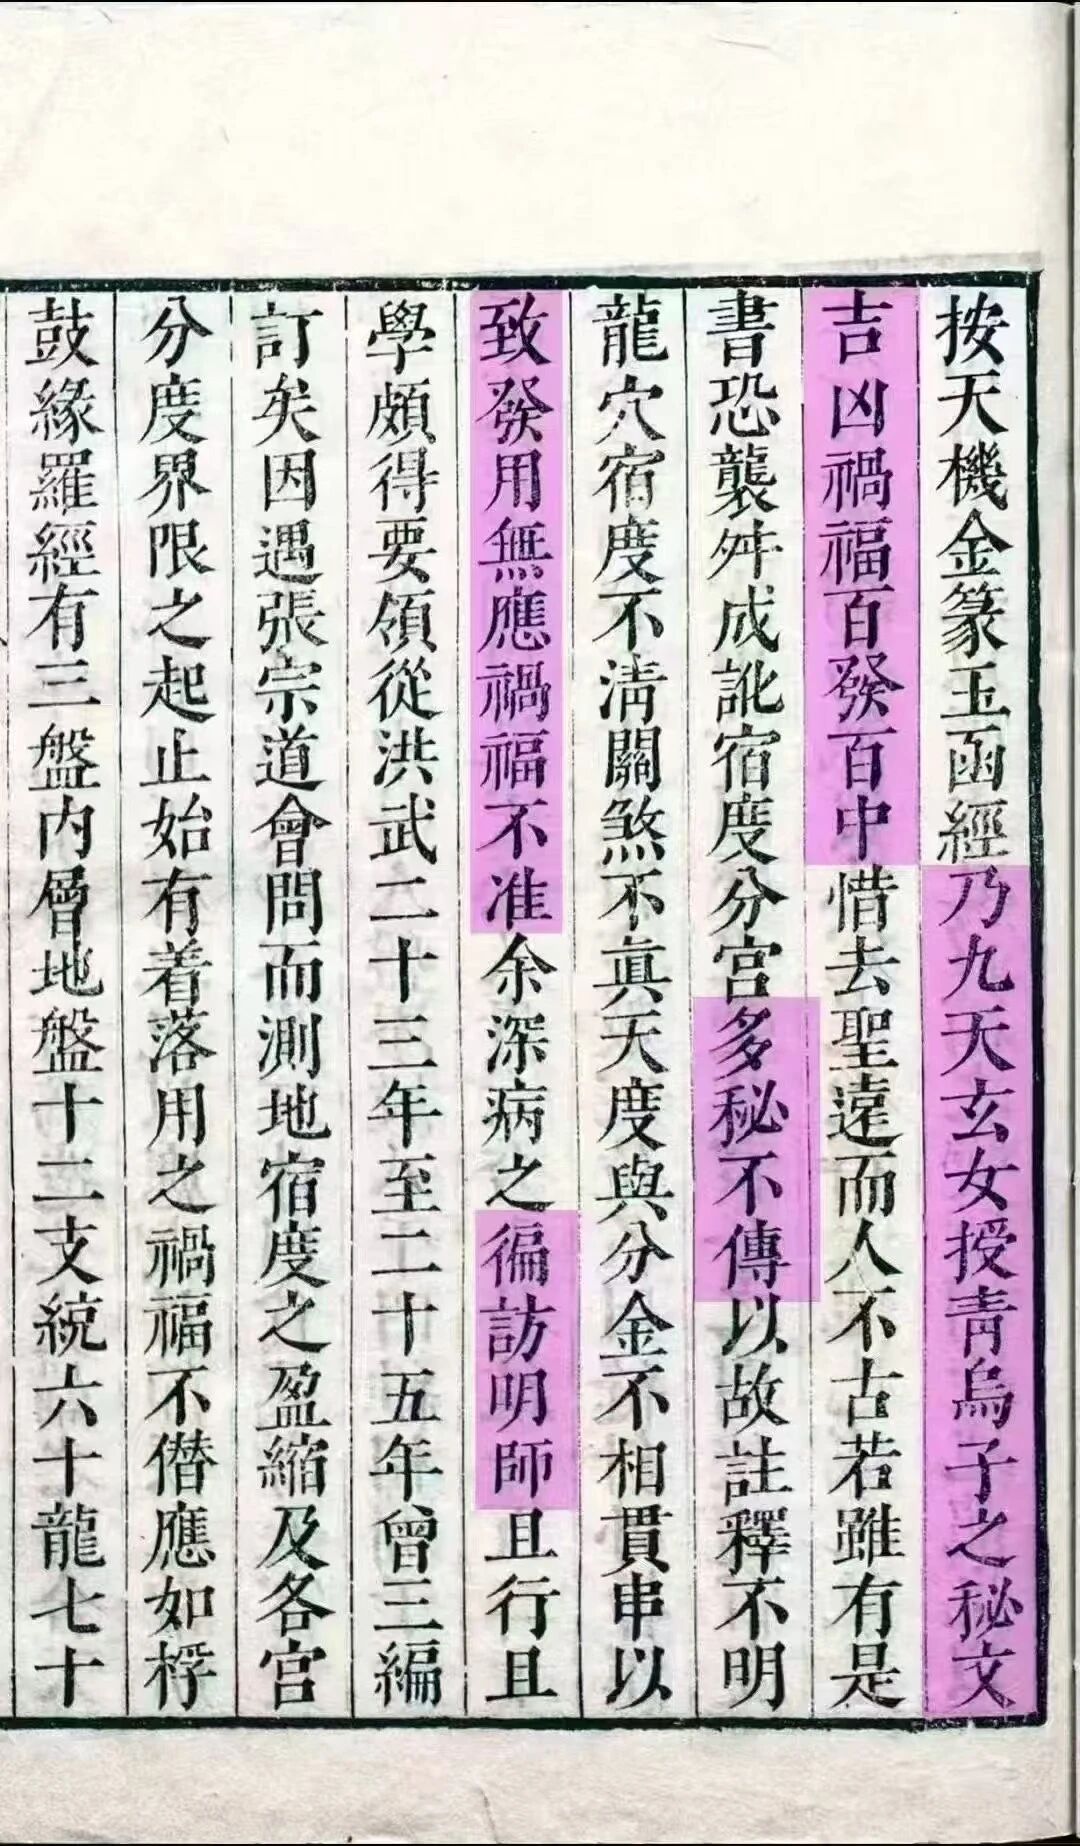 按天機金篆玉函經乃九天玄女授靑烏子之秘文
吉凶禍福百發百中惜去聖遠而人不古若雖有是
書恐襲舛成訛宿度分宮多秘不傳以故註釋不明
龍穴宿度不淸關煞不眞天度與分金不相貫串以
致發用無應禍福不准余深病之徧訪明師且行且
學頗得要領從洪武二十三年至二十五年曾三編
訂矣因遇張宗道會問而測地宿度之盈縮及各宮
分度界限之起止始有着落用之禍福不僣應如桴
鼓緣羅經有三盤內層地盤十二支統六十龍七十